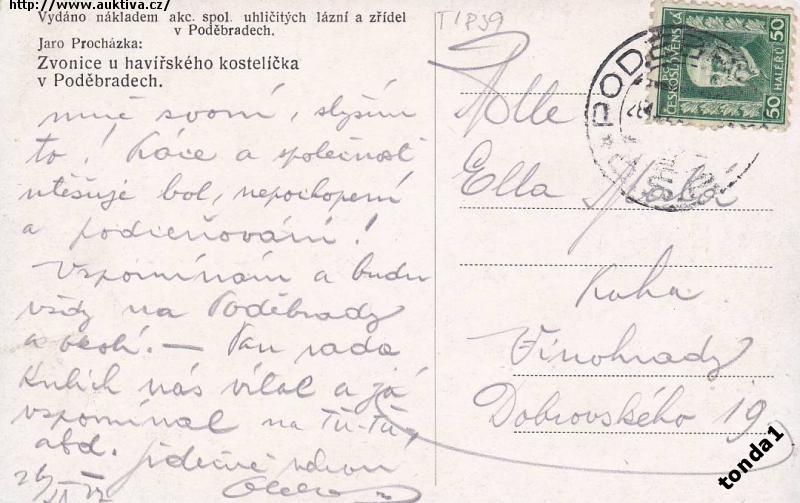 http://www.auktiva.cz/
Vydáno nákladem akc. spol. uhličitých lázní a zřídel
v Poděbradech.
Jaro Procházka:
Zvonice u havířského kostelíčka
v Poděbradech.
mně svorní, slyším
to! Práce a společnost
utěšuje bol, nepochopení
a podceňování!
Vzpomínám a budu
vždy na Poděbrady
a okolí. — Pan rada
Kulich nás vítal a já
vzpomínal na Tú-Tú,
atd.
T1839
ČESKOSLOVENSKÁ
50 HALÉŘŮ 50
POD
Mlle
Ella
Praha
Vinohrady
Dobrovského 19
tonda1